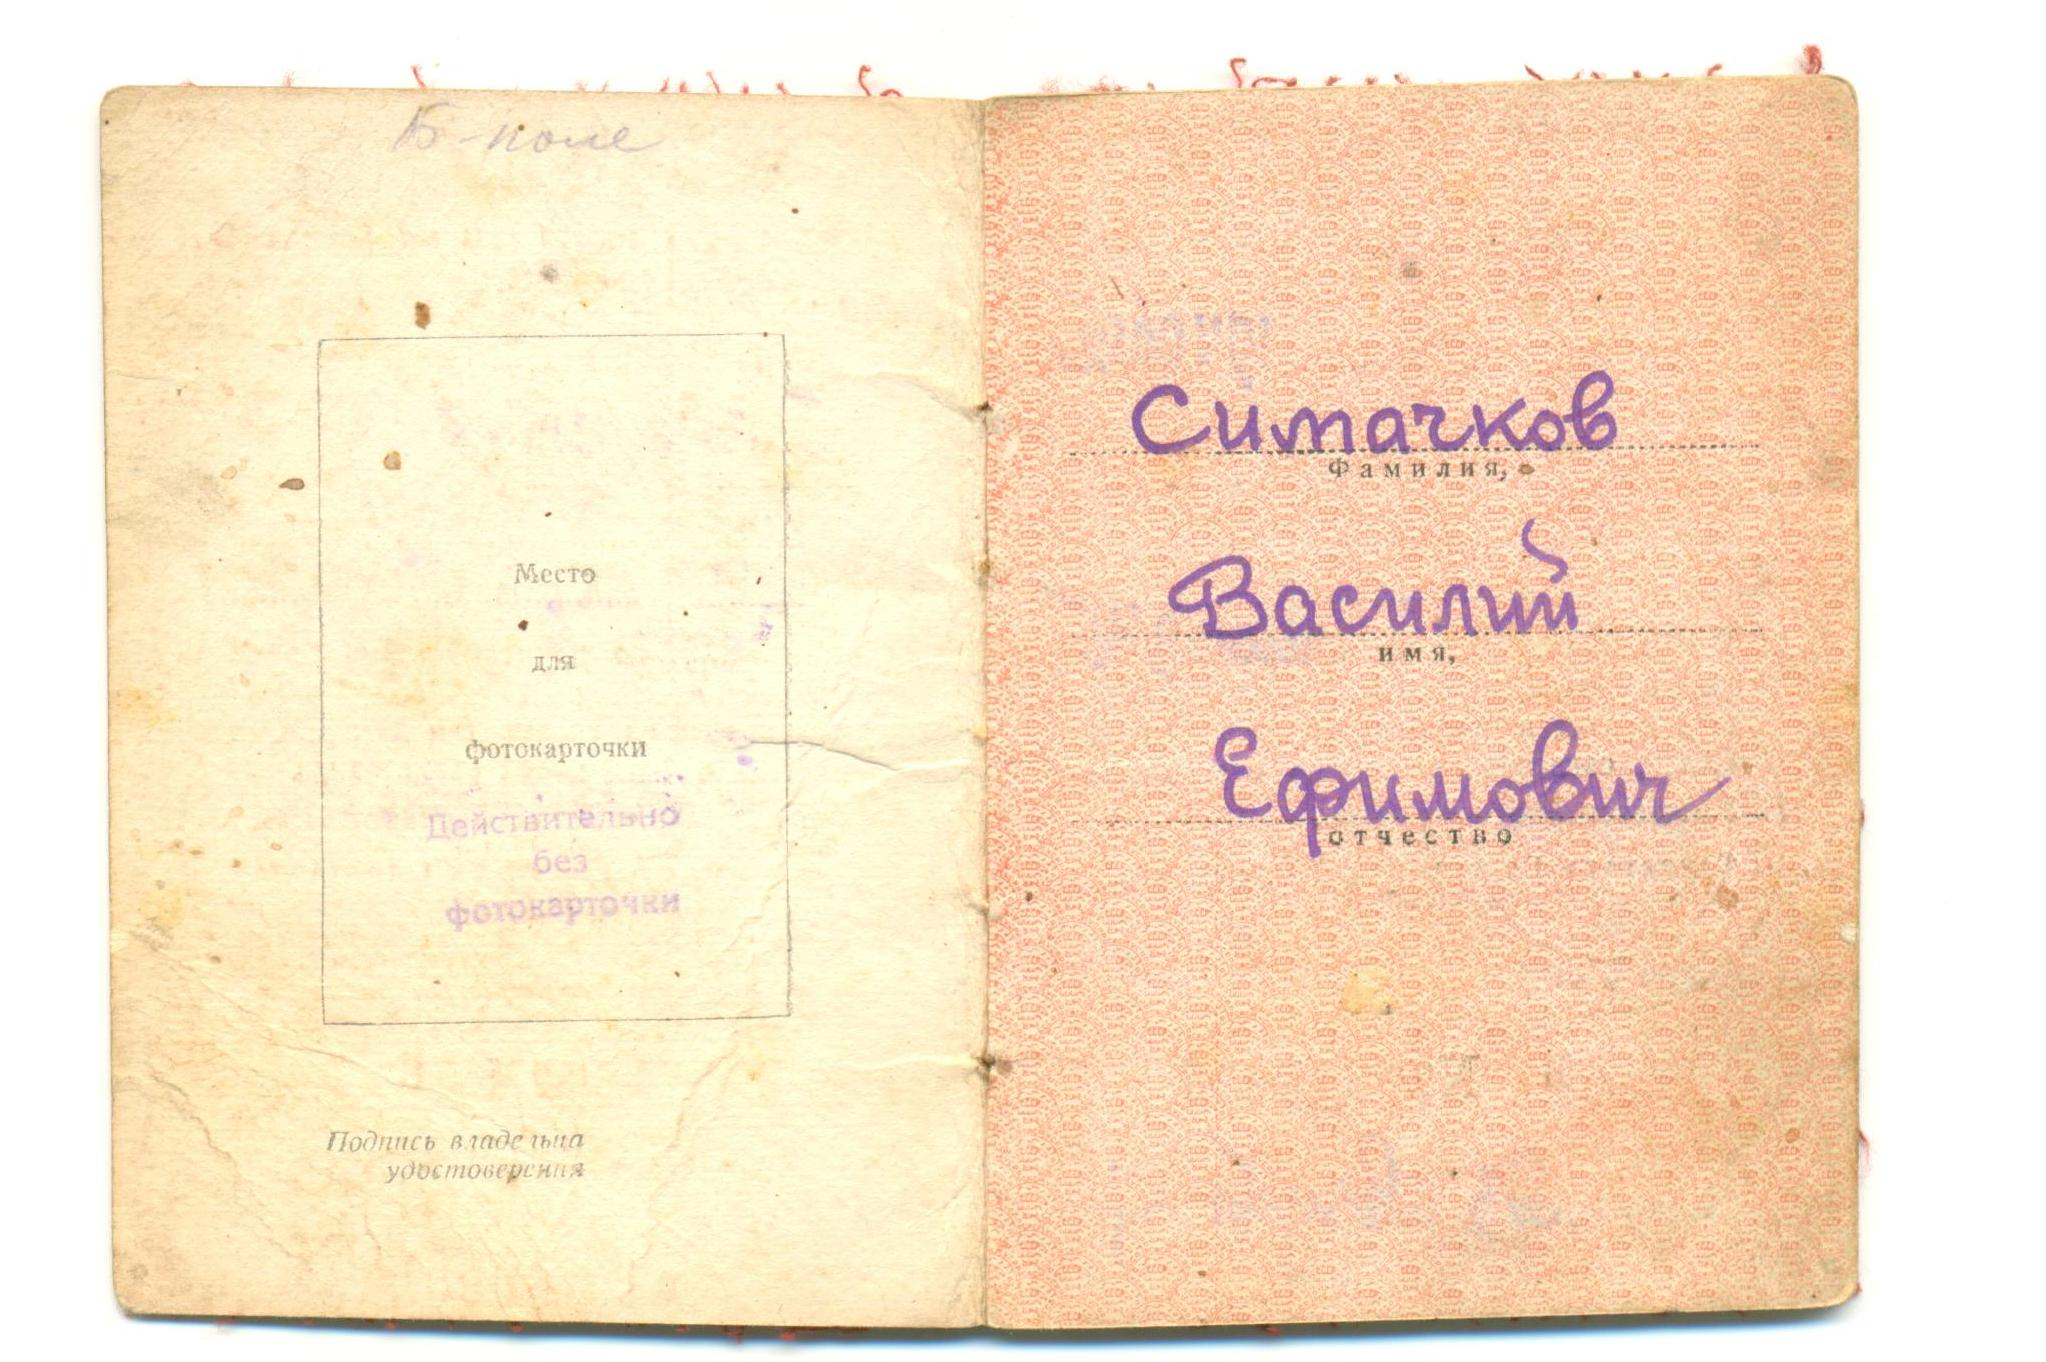 Б-поле
Место
для
фотокарточки
Действительно
без
фотокарточки
Подпись владельца
удостоверения
Симачков
Фамилия,
Василий
имя,
Ефимович
отчество